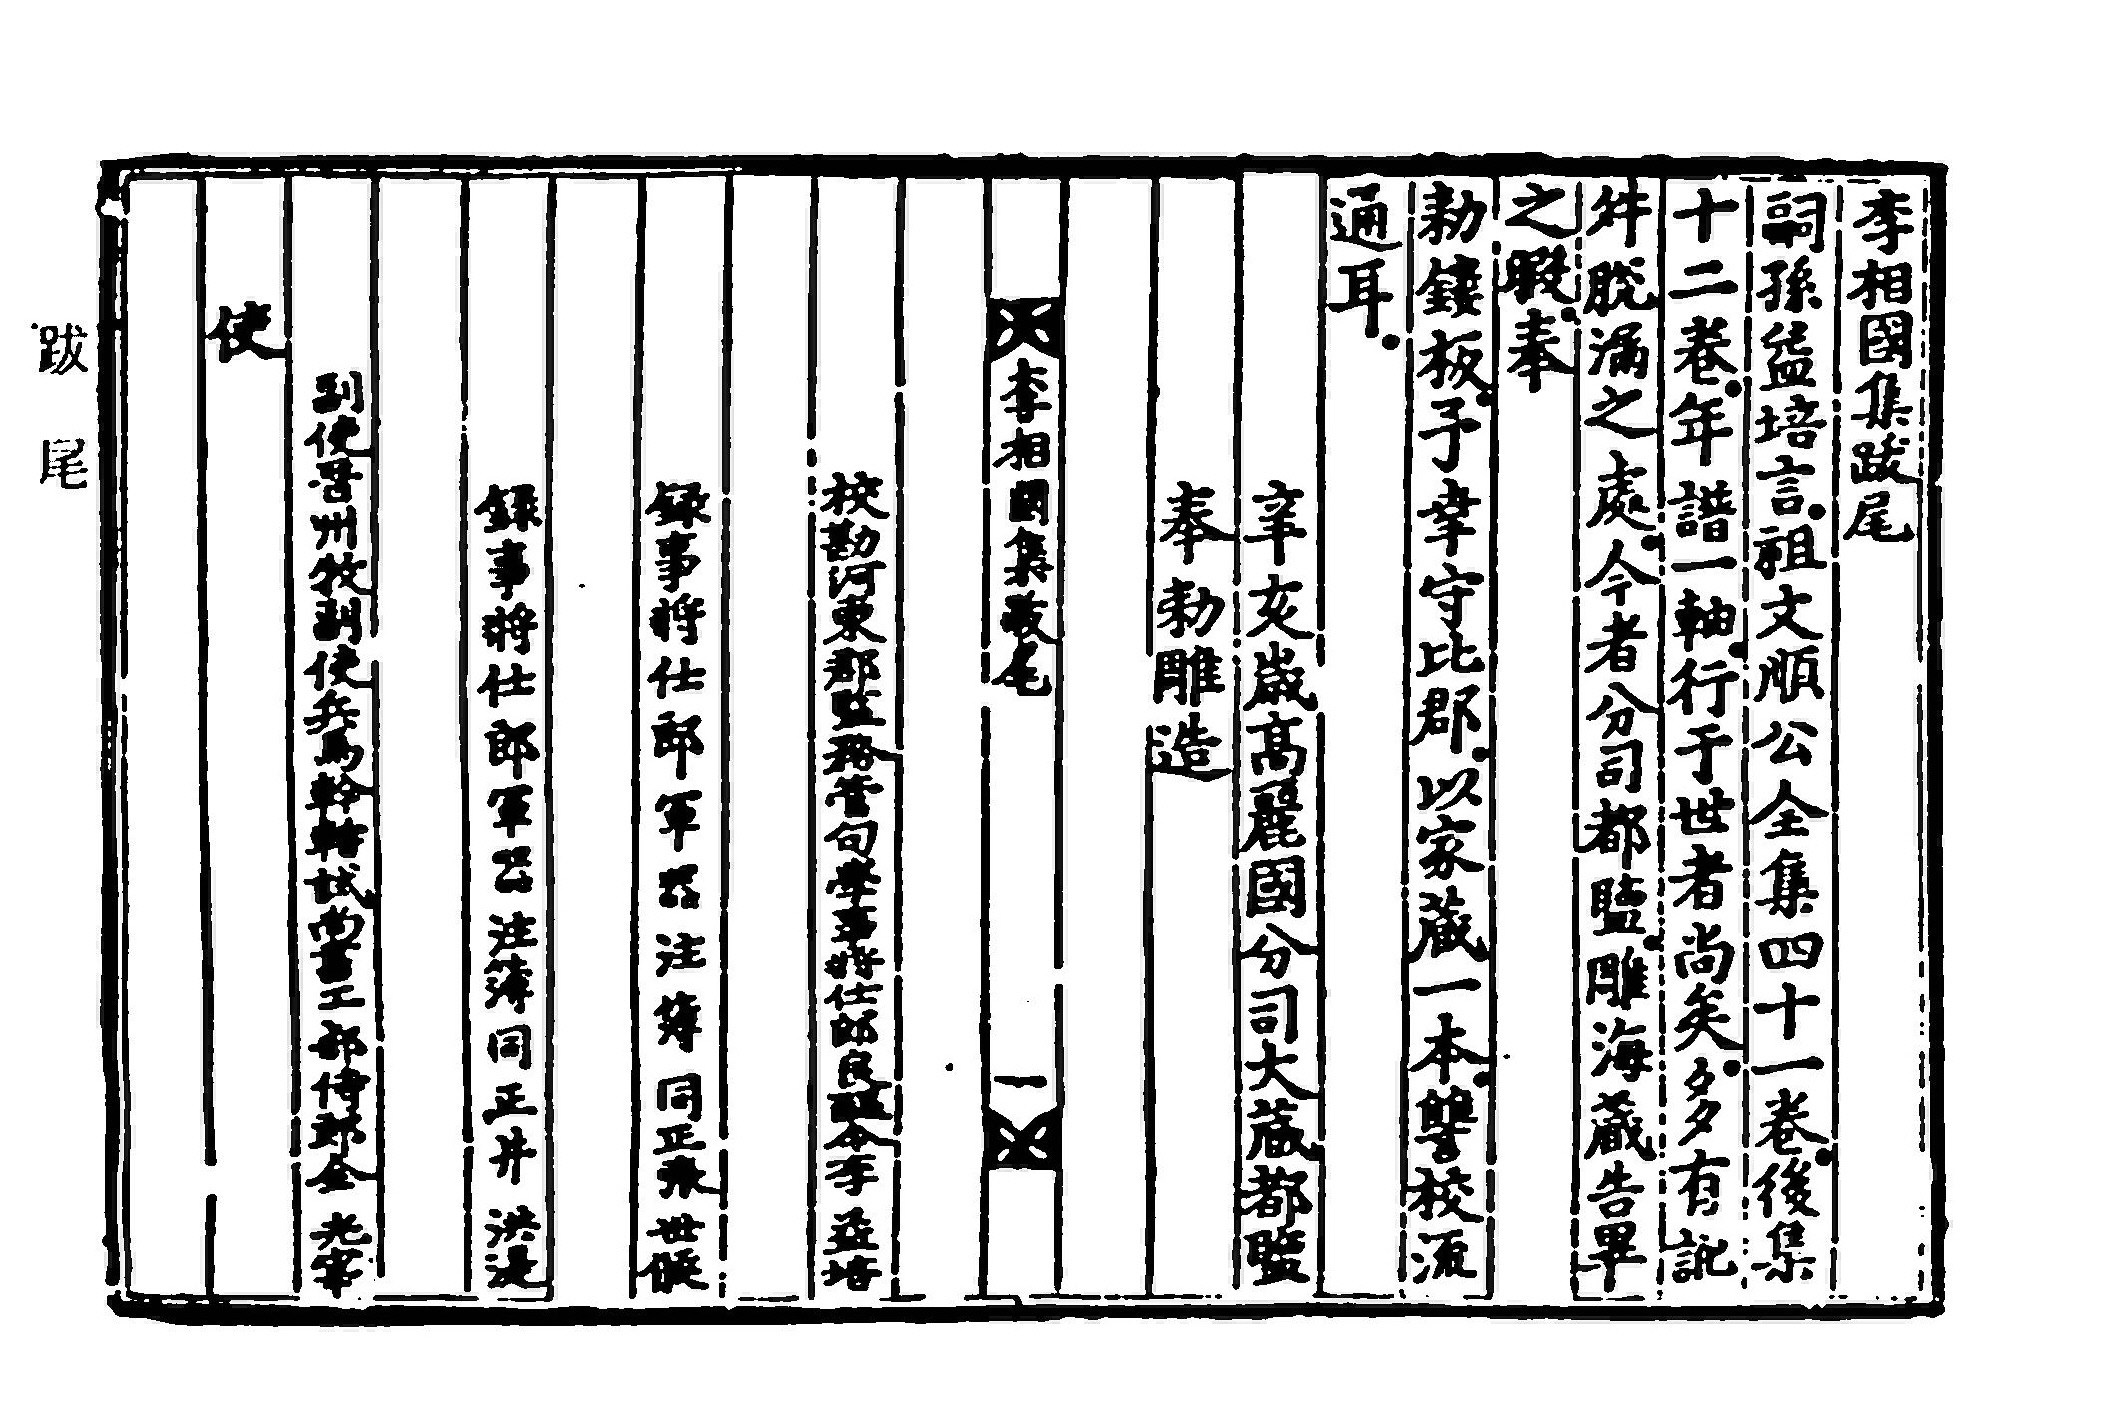 李相國集跋尾
嗣孫益培言祖文順公全集四十一卷後集
十二卷年譜一軸行于世者尚矣多有訛
舛脫漏之處今者分司都監雕海藏告畢
之暇奉
勑鏤板予幸守比郡以家藏一本讎校流
通耳
辛亥歲高麗國分司大藏都監
奉勑雕造
李相國集跋尾 一
校勘河東郡監務管句學事將仕郎良醞令李益培
錄事將仕郎軍器注簿同正張世候
錄事將仕郎軍器注簿同正井洪湜
副使晋州牧副使兵馬鈐轄試尚書工部侍郎全光宰
使
跋尾